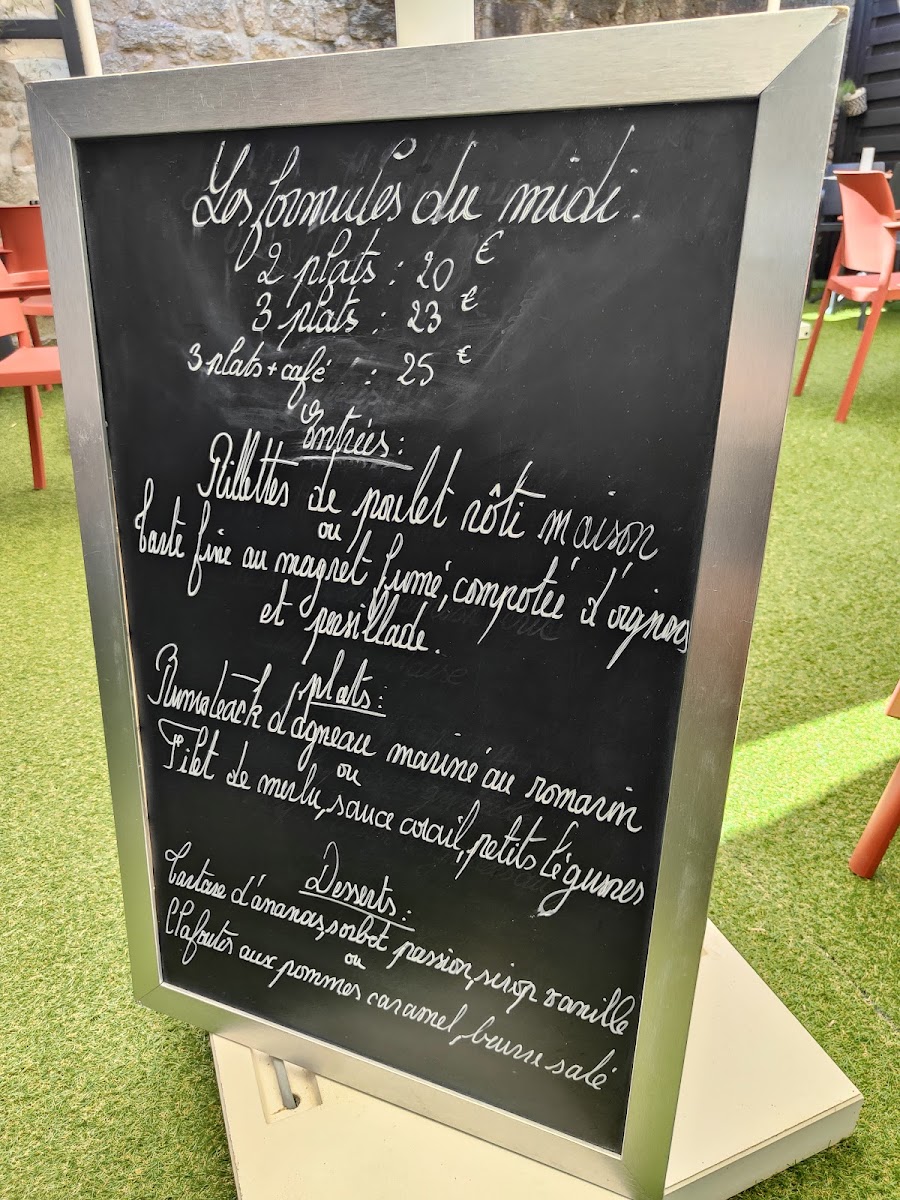 Les formules du midi:
2 plats : 20 €
3 plats : 23 €
3 plats + café : 25 €
Entrées :
Rillettes de poulet rôti maison
ou
Tarte fine au magret fumé, compotée d'oignons
et persillade.
plats :
Rumsteack d'agneau mariné au romarin
ou
Filet de merlu, sauce corail, petits légumes
Desserts :
Tartare d'ananas, sorbet passion, sirop vanille
ou
Clafoutis aux pommes caramel, beurre salé